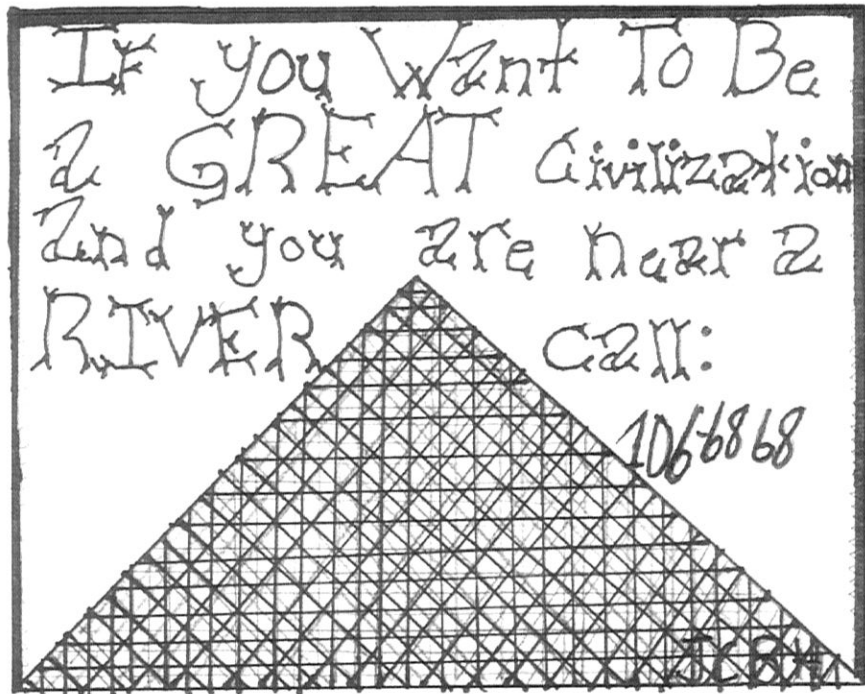 If you Want To Be
a GREAT Civilization
and you are near a
RIVER, call:
1066868
JCBH